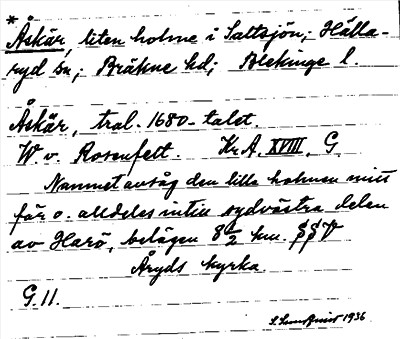 * Åskär, liten holme i Saltsjön; Hälla-
ryd sn; Bräkne hd; Blekinge l.
Åskär, tral. 1680-talet.
W. v. Rosenfelt. Kr. A. XVIII. G.
Namnet avsåg den lilla holmen mitt
för o. alldeles intill sydvästra delen
av Harö, belägen 8 1/2 km. SSV
Åryds kyrka.
G. 11.
1936